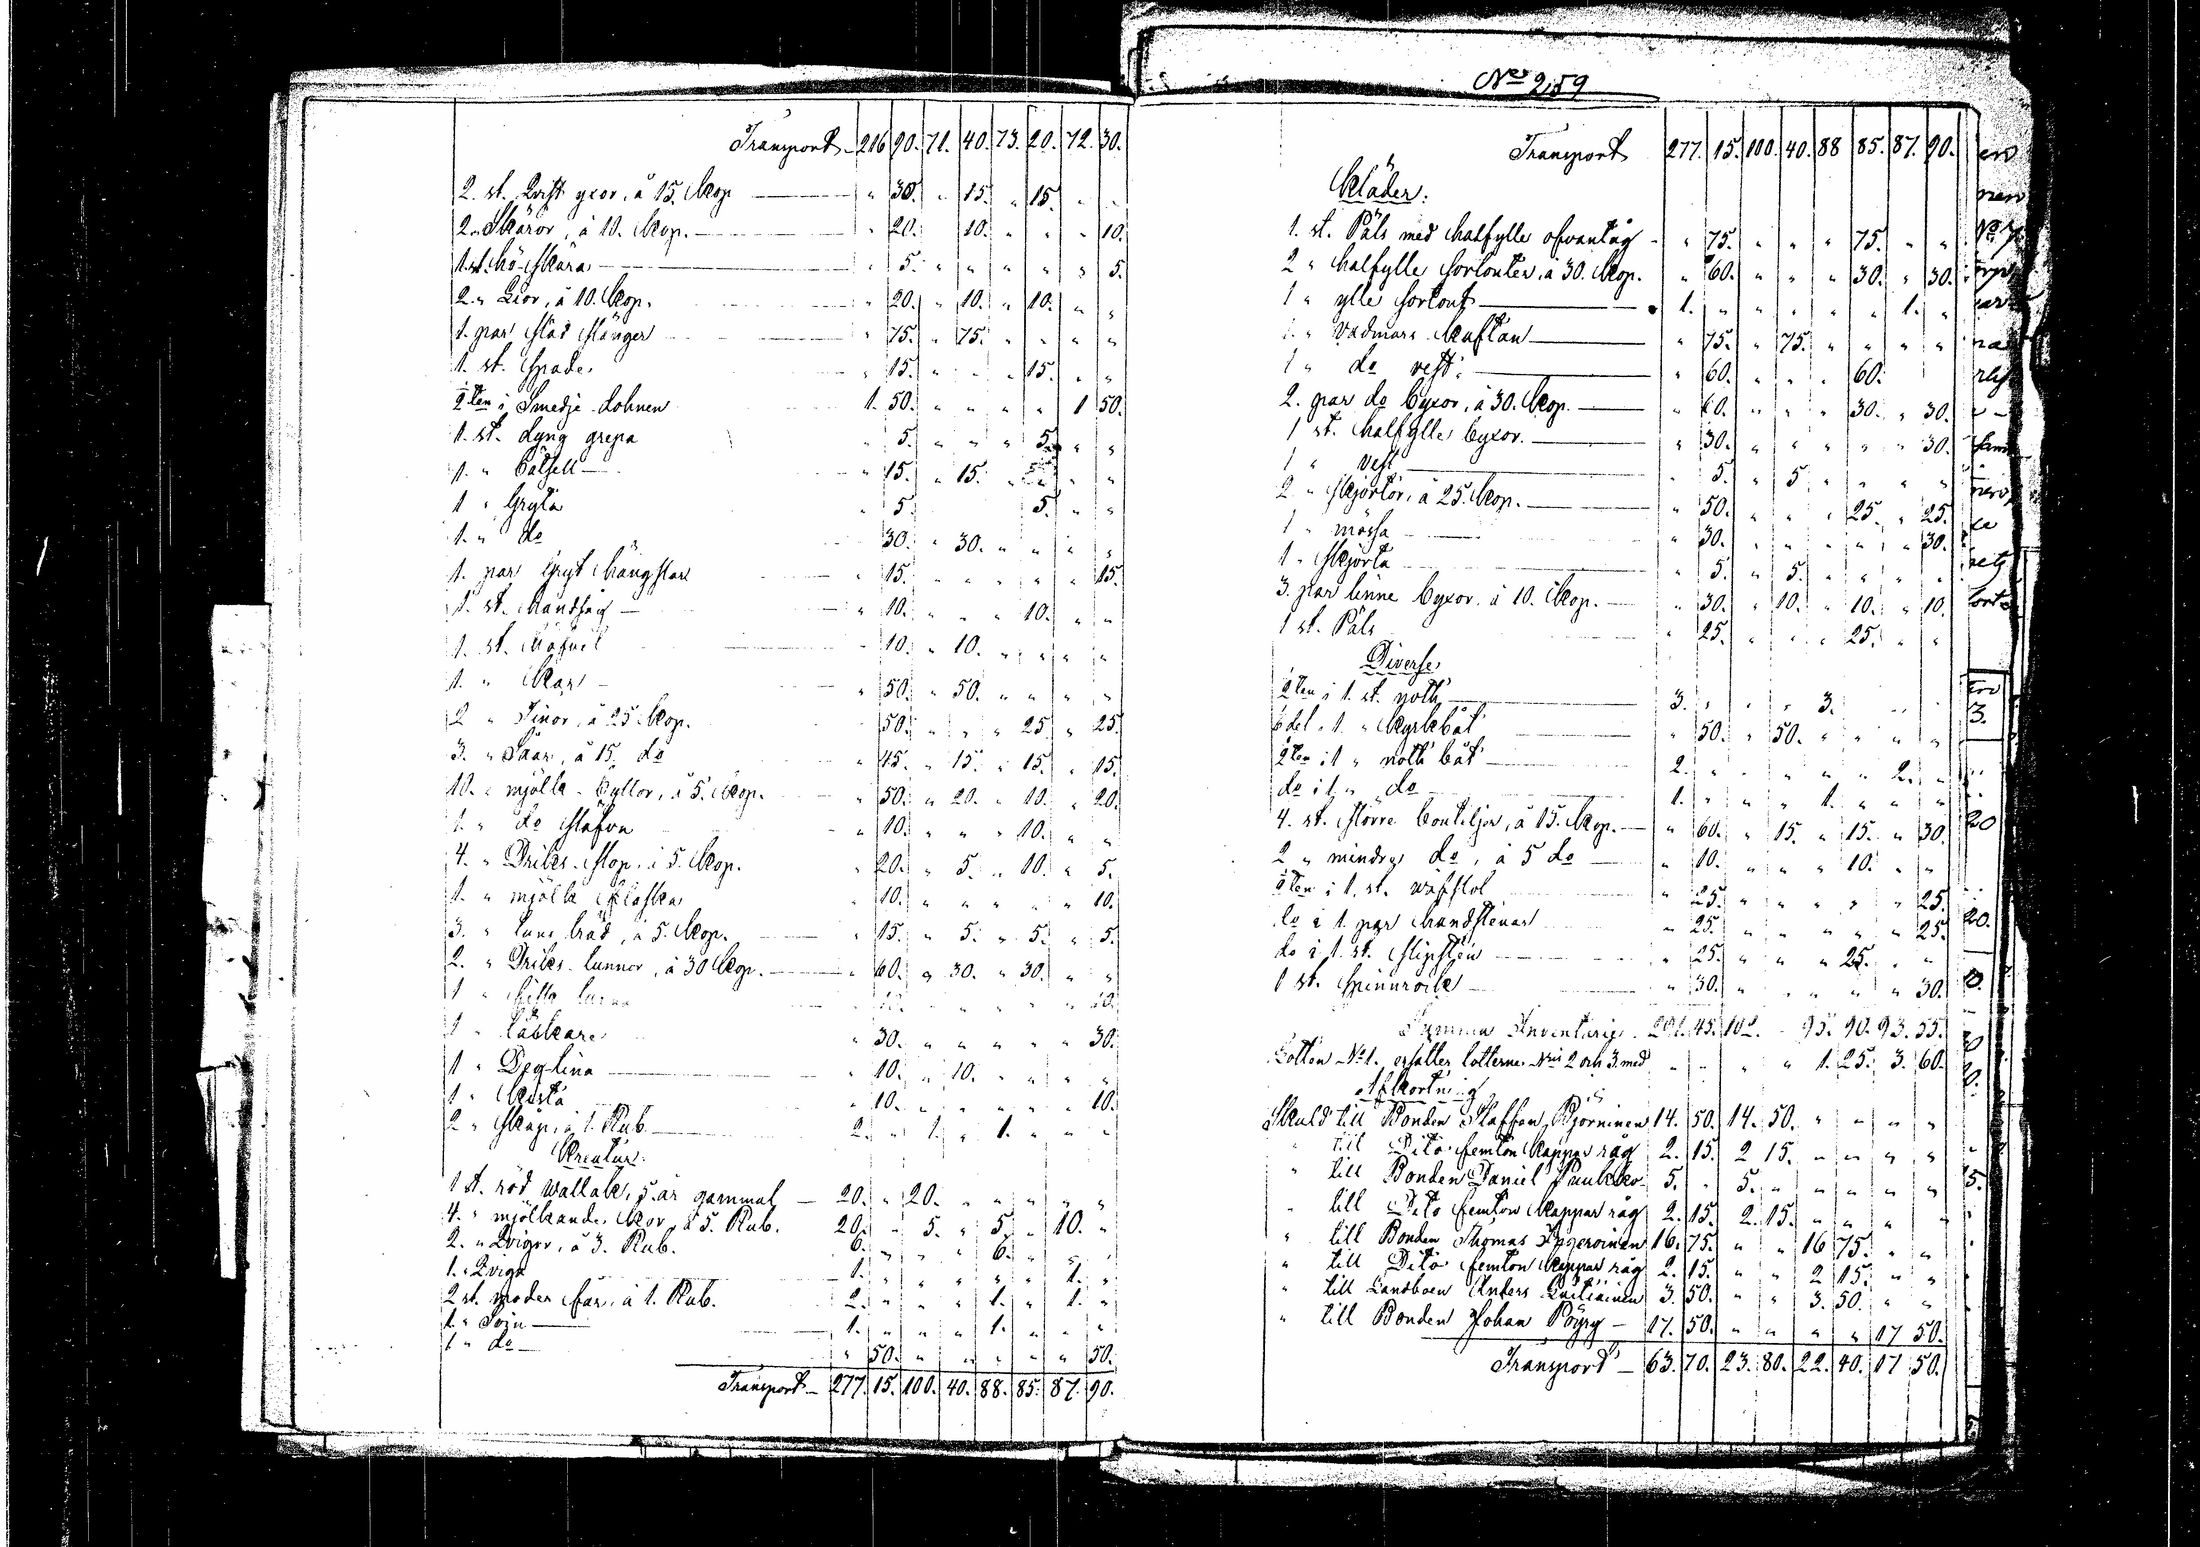 Transport 216 90. 71. 40. 73. 20. 72. 30.
2. st. Qvist yxor, à 15. Kop " 30. " 15. " 15. " "
2. " Skäror, à 10. Kop. " 20. " 10. " " " 10.
1. st. hö skära " 5. " " " " " 5.
2. " Lior, à 10. Kop. " 20. " 10. " 10. " "
1. par stänger " 75. " 75. " " " "
1. st. Spade " 15. " " " 15. " "
i Smedje 1. 50. " " " " 1 50.
1. st. dyng grepa " 5. " " " 5. " "
1. " " 15. " 15. " " "
1 " Gryta " 5. 5. " "
1. " do 30. " 30. " " " "
1. par Gryt " 15. " " " " " 15.
1. st. handsåg " 10. " " " 10. " "
1. st. 10. " 10. " " " "
1. " Kar " 50. " 50. " " " "
2 " Tinor, à 25 Kop. 50. " " " 25. " 25.
3. " Såar, à 15. do " 45. " 15. " 15. " 15.
10. " mjölk Byttor, à 5. Kop. " 50. " 20. " 10. " 20.
1. " do stäfva " 10. " " " 10. " "
4. " Dricks stop, à 5. Kop. " 20. " 5. " 10. " 5.
1. " mjölk flaska " 10. " " " " " 10.
3. " bräd, à 5. Kop. " 15. " 5. " 5. " 5.
2. " Dricks tunnor, à 30 Kop. " 60. " 30. " 30. " "
1 "
1 " 30. " " " " " 30.
1 " Degtina " 10. " 10. " " " "
1 " Kista " 10. " " " " " 10.
2 " Skåp, à 1. Rub. 2. " 1. " 1. " " "
Kreatur:
1 st. röd wallak, 5. år gammal 20. " 20. " " " " "
4. " mjölkande Kor à 5. Rub. 20. " 5. " 5. " 10. "
2. " Qvigor, à 3. Rub. 6. " " " 6. " " "
1. " Qviga 1. " " " " " 1. "
2 st. moder får, à 1. Rub. 2. " " " 1. " 1. "
1. " 1. " " " 1. " " "
1 " do " 50. " " " " " 50.
Transport 277. 15. 100. 40. 88. 85. 87. 90.
No 259
Transport 277. 15. 100. 40. 88 85. 87. 90.
Kläder:
1. st. Päls med halfylle ofvantåg " 75. " " " 75. " "
2 " halfylle sortouter, à 30. Kop. " 60. " " " 30. " 30.
1 " ylle sortout 1. " " " " " 1. "
1. " Vadmars Kaftan " 75. " 75. " " " "
1 " do vest " 60. " " " 60.
2. par do byxor, à 30. Kop. " 60. " " " 30. " 30.
1 st. halfylle byxor. " 30. " " " " " 30.
1 " vest " 5. " 5 " " " "
2 " Skjortor, à 25. Kop. " 50. " " " 25. " 25.
1 " mössa " 30. " " " " " 30.
1 " Skjorta " 5. " 5. " " " "
3. par linne byxor à 10. Kop. " 30. " 10. " 10. " 10.
1 st. Päls " 25. " " " 25. " "
Diverse
i 1. st. noth 3. " " " 3. " " "
6 del. i 1 " Kyrkbåt " 50. " 50. " " " "
i 1 " noth båt 2. " " " " " 2. "
do i 1. " do 1. " " " 1. " " "
4. st. större bouteljer, à 15. Kop. " 60. " 15. " 15. " 30.
2 " mindre do, à 5 do " 10. " " " 10. " "
i 1. st. wäfstol " 25. " " " " " 25.
do i 1. par handstenar " 25. " " " " " 25.
do i 1. st. slipsten " 25. " " " 25. " "
1 st. Spinnrock " 30. " " " " " 30.
Summa Inventarie 95. 90. 93. 55.
Lotten No 1. ersätter lotterne Nris 2 och 3. med " " " " 1. 25. 3. 60.
Afkortning
Skuld till Bonden Staffan Björninen 14. 50. 14. 50. " " " "
" till Dito femton Kappar råg 2. 15. 2 15. " " " "
" till Bonden Daniel 5. " 5. " " " " "
" till Dito femton Kappar råg 2. 15. 2. 15. " " " "
" till Bonden Thomas 16. 75. " " 16 75. " "
" till Dito femton Kappar råg 2. 15. " " 2 15. " "
" till Landboen Anders 3. 50. " " 3. 50. " "
" till Bonden Johan Pöyry 17. 50. " " " " 17 50.
Transport 63. 70. 23. 80. 22. 40. 17 50.